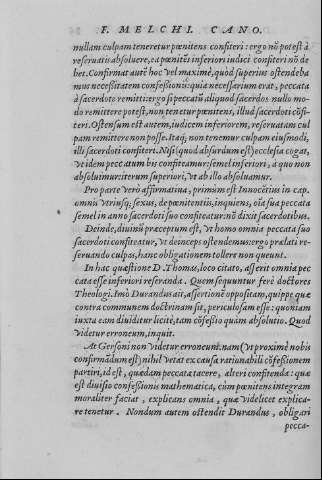 F. MELCHI. CANO.
nullam culpam teneretur pœnitens confiteri: ergo nõ potest à
reseruatis absoluere, ea pœnitẽs inferiori iudici confiteri nõ de
bet. Confirmat autẽ hoc vel maximè, quòd superius ostendeba
mus necessitatem confessionis: quia necessarium erat, peccata
à sacerdote remitti: ergo si peccatũ aliquod sacerdos nullo mo-
do remittere potest, non tenetur pœnitens, illud sacerdoti cõfi-
teri. Ostensum est autem, iudicem inferiorem, reseruatam cul
pam remittere non posse. Itaq; non tenemur culpam eiusmodi,
illi sacerdoti confiteri. Nisi (quod absurdum est) ecclesia cogat,
vt idem peccatum bis confiteamur: semel inferiori, à quo non
absoluimur: iterum superiori, vt ab illo absoluamur.
Pro parte verò affirmatiua, primum est Innocẽtius in cap.
omnis vtriusq; sexus, de pœnitentiis, inquiens, oĩa sua peccata
semel in anno sacerdoti suo confiteatur: nõ dixit sacerdotibus.
Deinde, diuinũ præceptum est, vt homo omnia peccata suo
sacerdoti confiteatur, vt deinceps ostendemus: ergo prælati re-
seruando culpas, hanc obligationem tollere non queunt.
In hac quæstione D. Thomas, loco citato, asserit omnia pec
cata esse inferiori referenda. Quem sequuntur ferè doctores
Theologi. Imò Durandus ait, assertionẽ oppositam, quippe quæ
contra communem doctrinam sit, periculosam esse: quoniam
iuxta eam diuiditur licitè, tam cõfessio quàm absolutio. Quod
videtur erroneum, inquit.
At Gersoni non videtur erroneum. nam (vt proximè nobis
confirmãdum est) nihil vetat ex causa rationabili cõfessionem
partiri, id est, quædam peccata tacere, alteri confitenda: quæ
est diuisio confessionis mathematica, cùm pœnitens integram
moraliter faciat, explicans omnia, quæ videlicet explica-
re tenetur. Nondum autem ostendit Durandus, obligari
pecca-